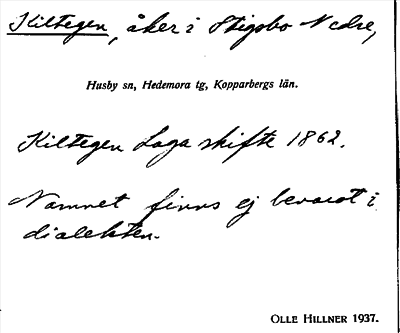 Kiltegen, åker i Stigsbo Nedre,
Husby sn, Hedemora tg, Kopparbergs län.
Kiltegen Laga skifte 1862.
Namnet finns ej bevarat i
dialekten.
OLLE HILLNER 1937.